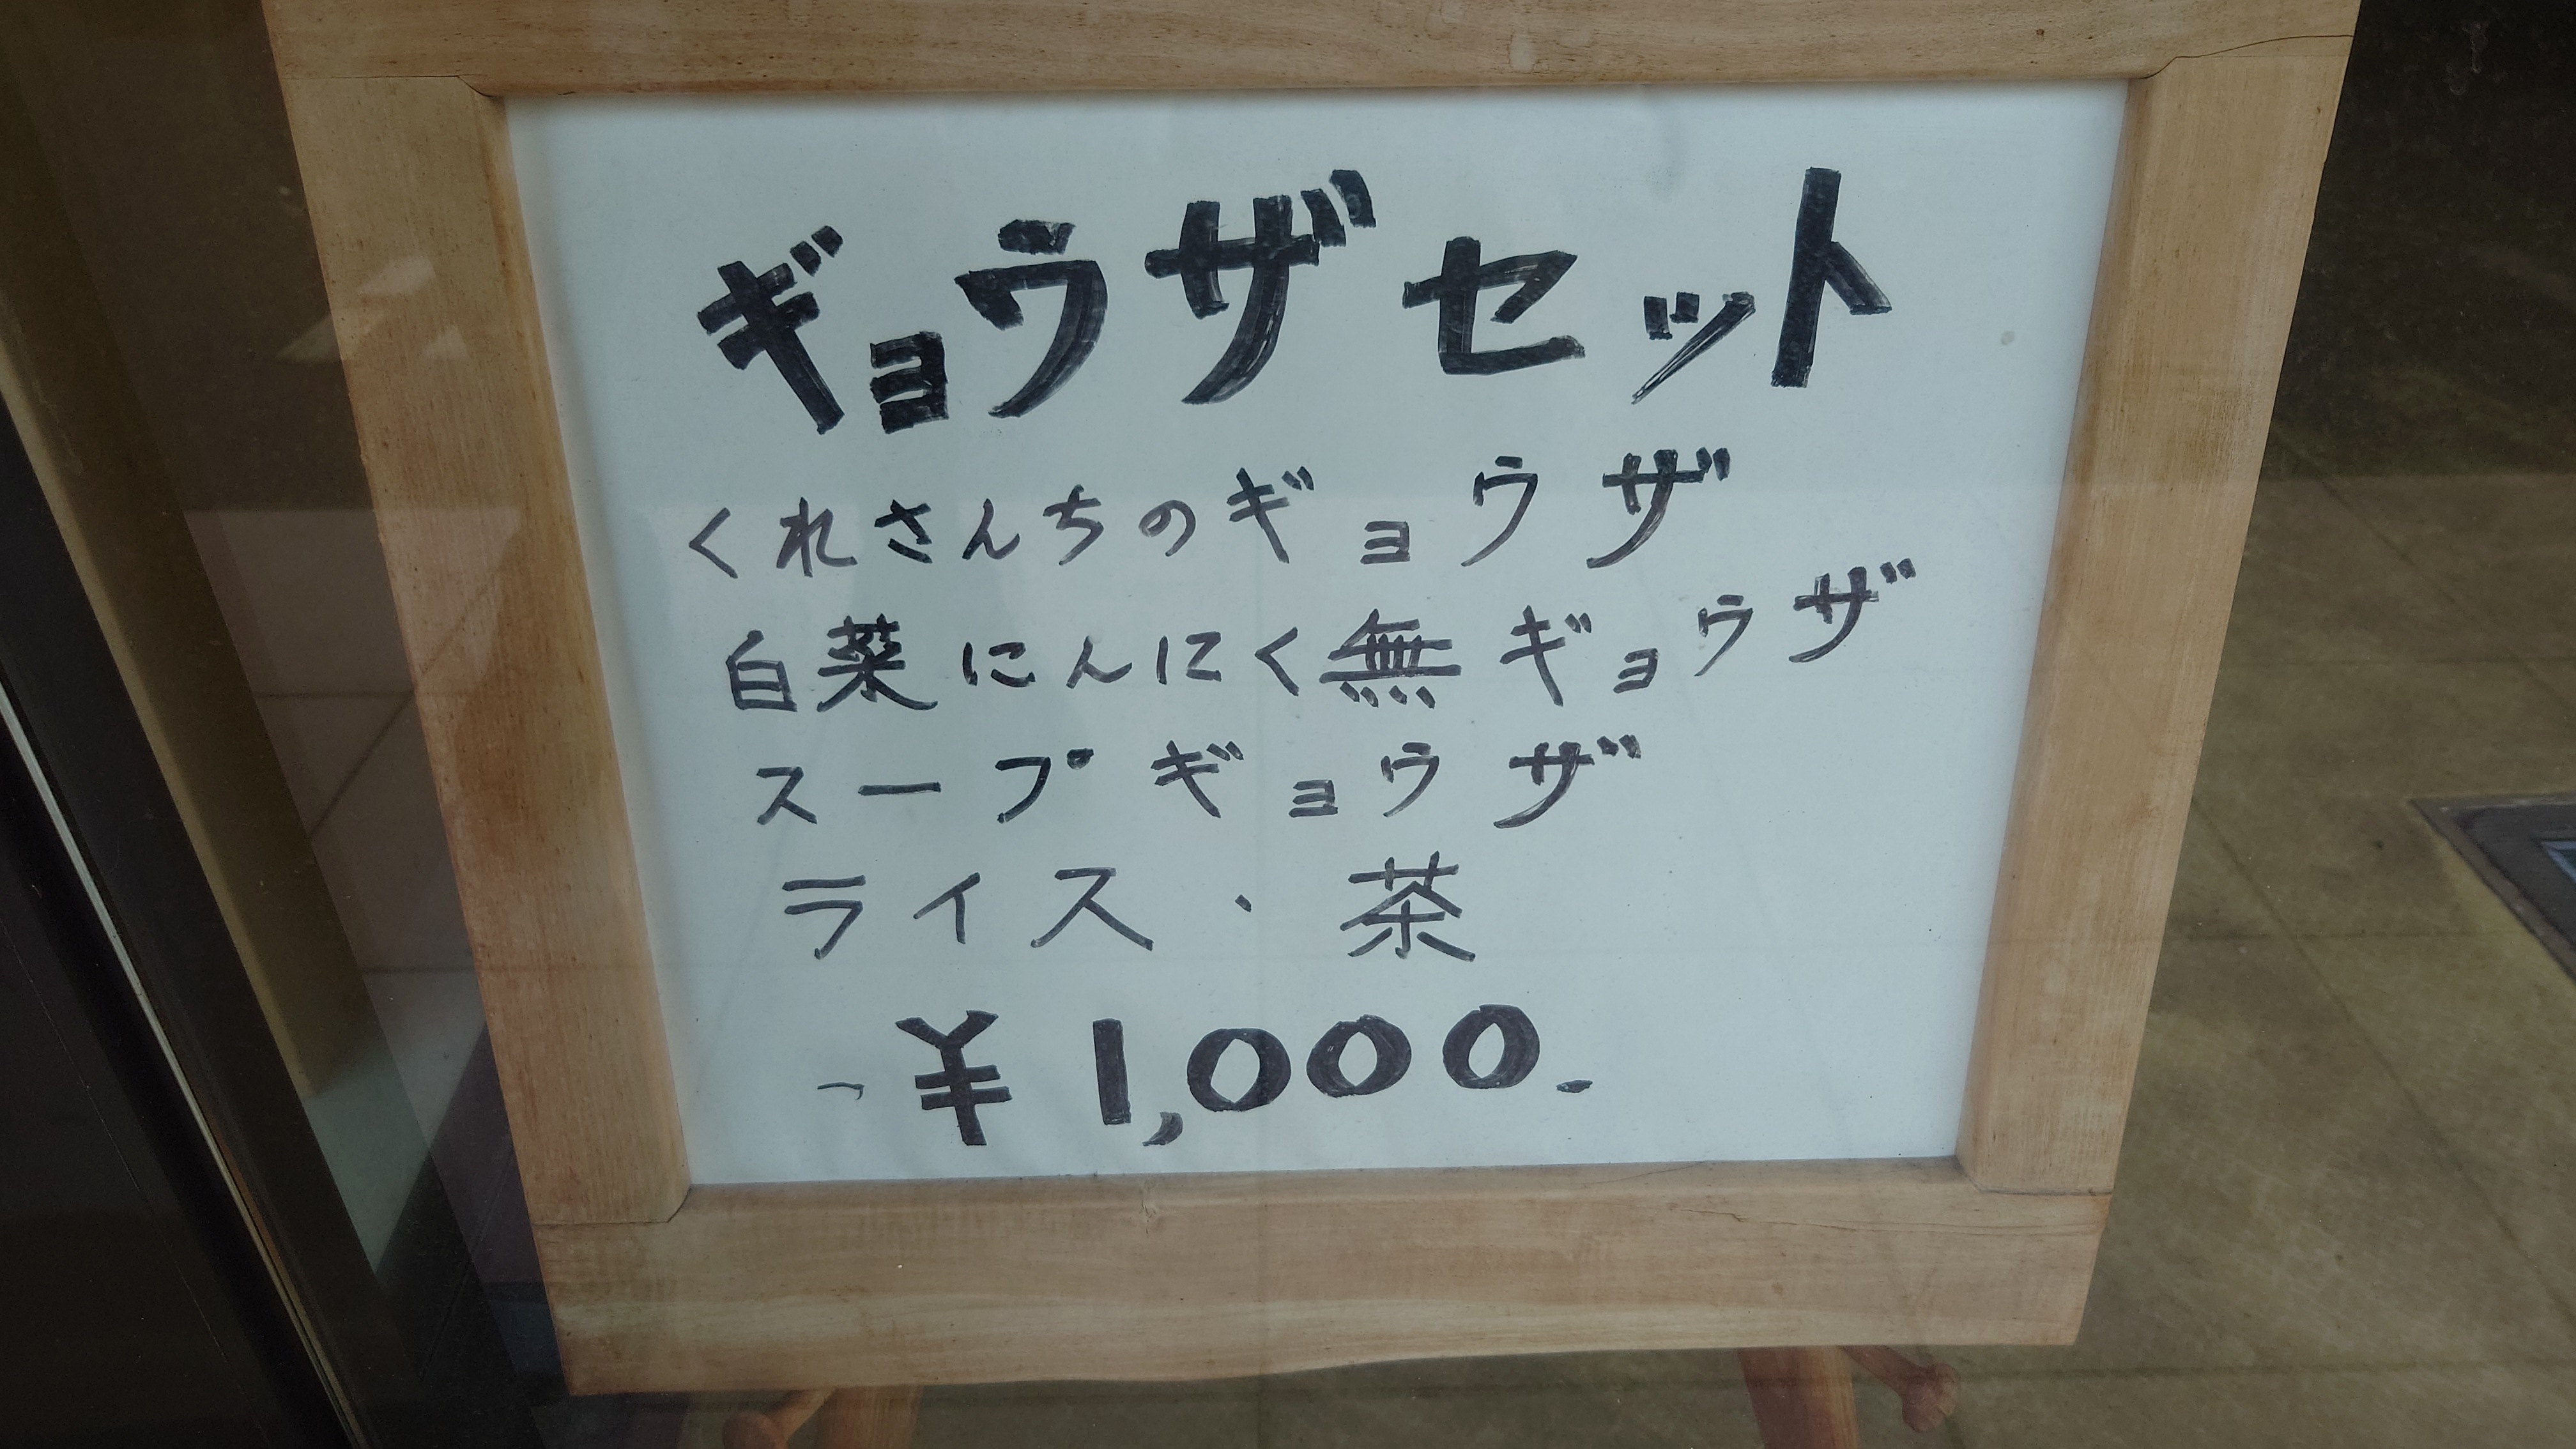 ギョウザセット
くれさんちのギョウザ
白菜にんにく無ギョウザ
スープギョウザ
ライス・茶
¥1,000-